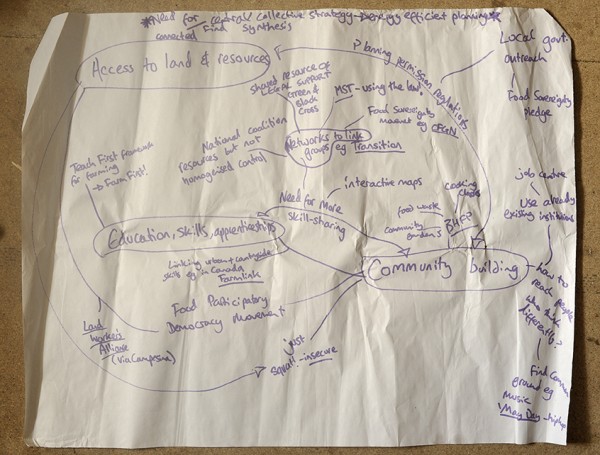 *Need for central collective strategy - energy efficient planning*
connected
Find Synthesis
Access to land & resources
Planning permission regulations
Local govt.
outreach
Food Sovereignty
pledge
shared resource of
LEGAL SUPPORT
Green &
Black
Cross
MST - using the law.
Food Sovereignty
movement eg CFGN
Networks to link
groups eg Transition
National coalition
resources but not
homogenised control
Teach First framework
for farming
→ Farm First!
interactive maps
Need for More
skill-sharing
food waste
community
gardens
cooking
BHFP
job centre
Use already
existing institutions
Education, skills, apprenticeships
Linking urban + countryside
skills eg in Canada
Farmlink
Community building
how to
reach people
who think
differently?
Food Participatory
Democracy Movement
Land
Workers
Alliance
(via Campesina)
just
squat! - insecure
Find Common
ground eg
Music
May Day - hiphop